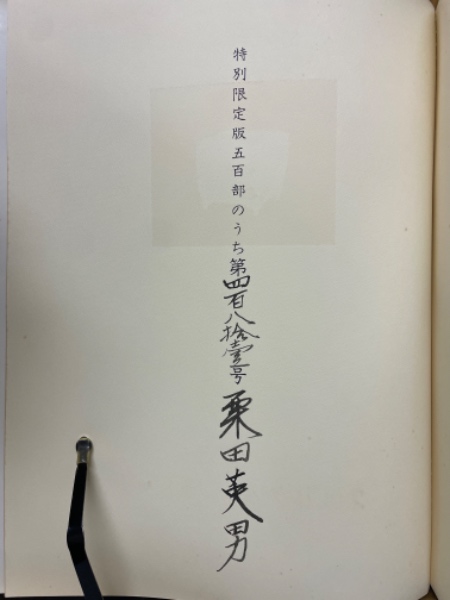 特別限定版五百部のうち第四百八拾壹号 栗田英男